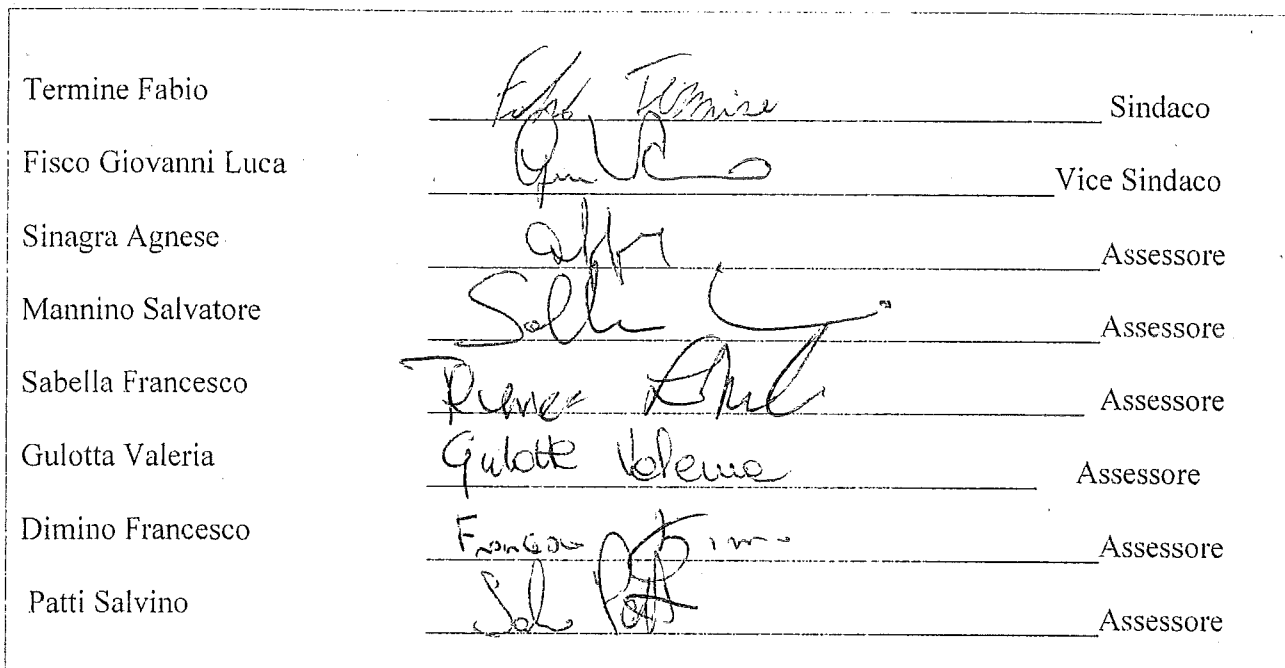 Termine Fabio Fabio Termine Sindaco
Fisco Giovanni Luca Vice Sindaco
Sinagra Agnese Assessore
Mannino Salvatore Assessore
Sabella Francesco Assessore
Gulotta Valeria Gulotta Valeria Assessore
Dimino Francesco Francesco Dimino Assessore
Patti Salvino Patti Assessore